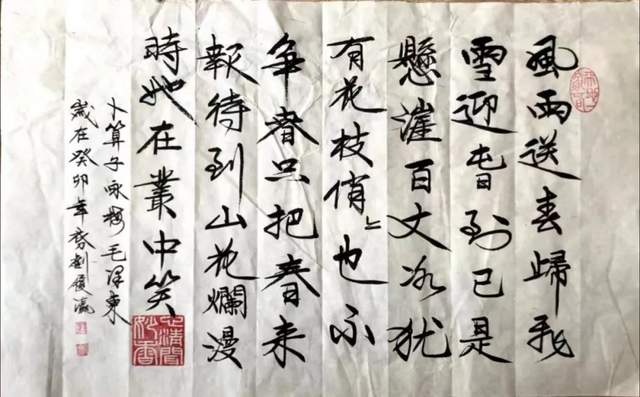 風雨送春歸飛
雪迎春到已是
懸崖百丈冰犹
有花枝俏〻也不
争春只把春来
報待到山花爛漫
時她在叢中笑
卜算子咏梅毛泽東
歲在癸卯年劉
心清聞妙香